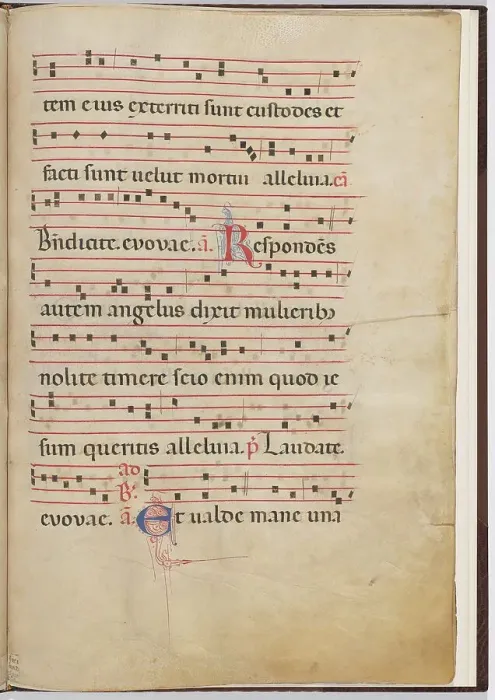 tem eius exterriti sunt custodes et
facti sunt uelut mortui alleluia. cā
Bn̄dicite. evovae. ā. Respondēs
autem angelus dixit mulieribꝫ
nolite timere scio enim quod ie
sum queritis alleluia. p̄ Laudate.
ad
B̄.
evovae. ā. Et ualde mane una